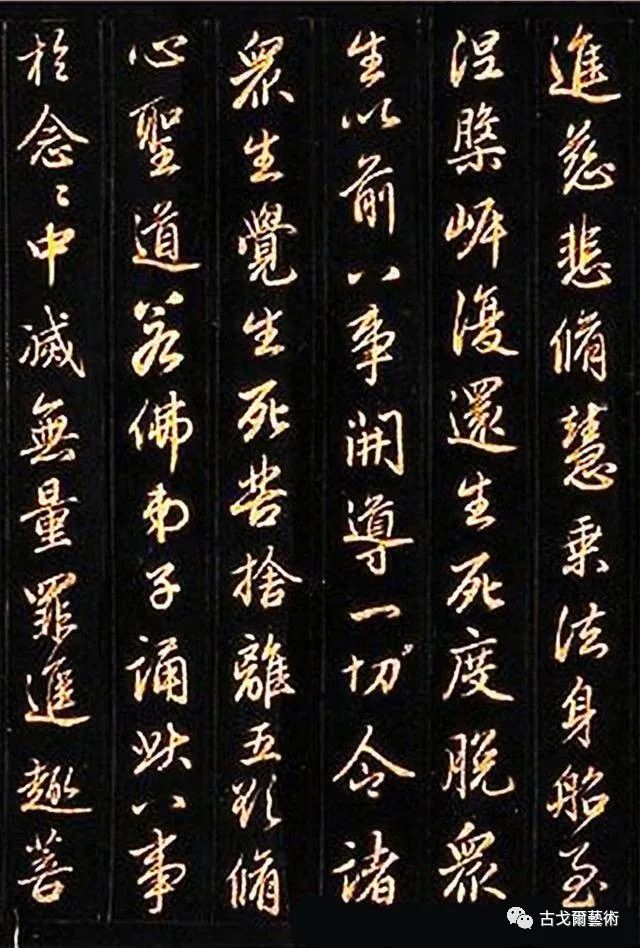 進慈悲脩慧乗法身船至
涅槃岸復還生死度脱衆
生以前八事開導一切令諸
衆生覺生死苦捨離五欲脩
心聖道若佛弟子誦此八事
於念〻中滅無量罪進趣菩
古戈爾藝術